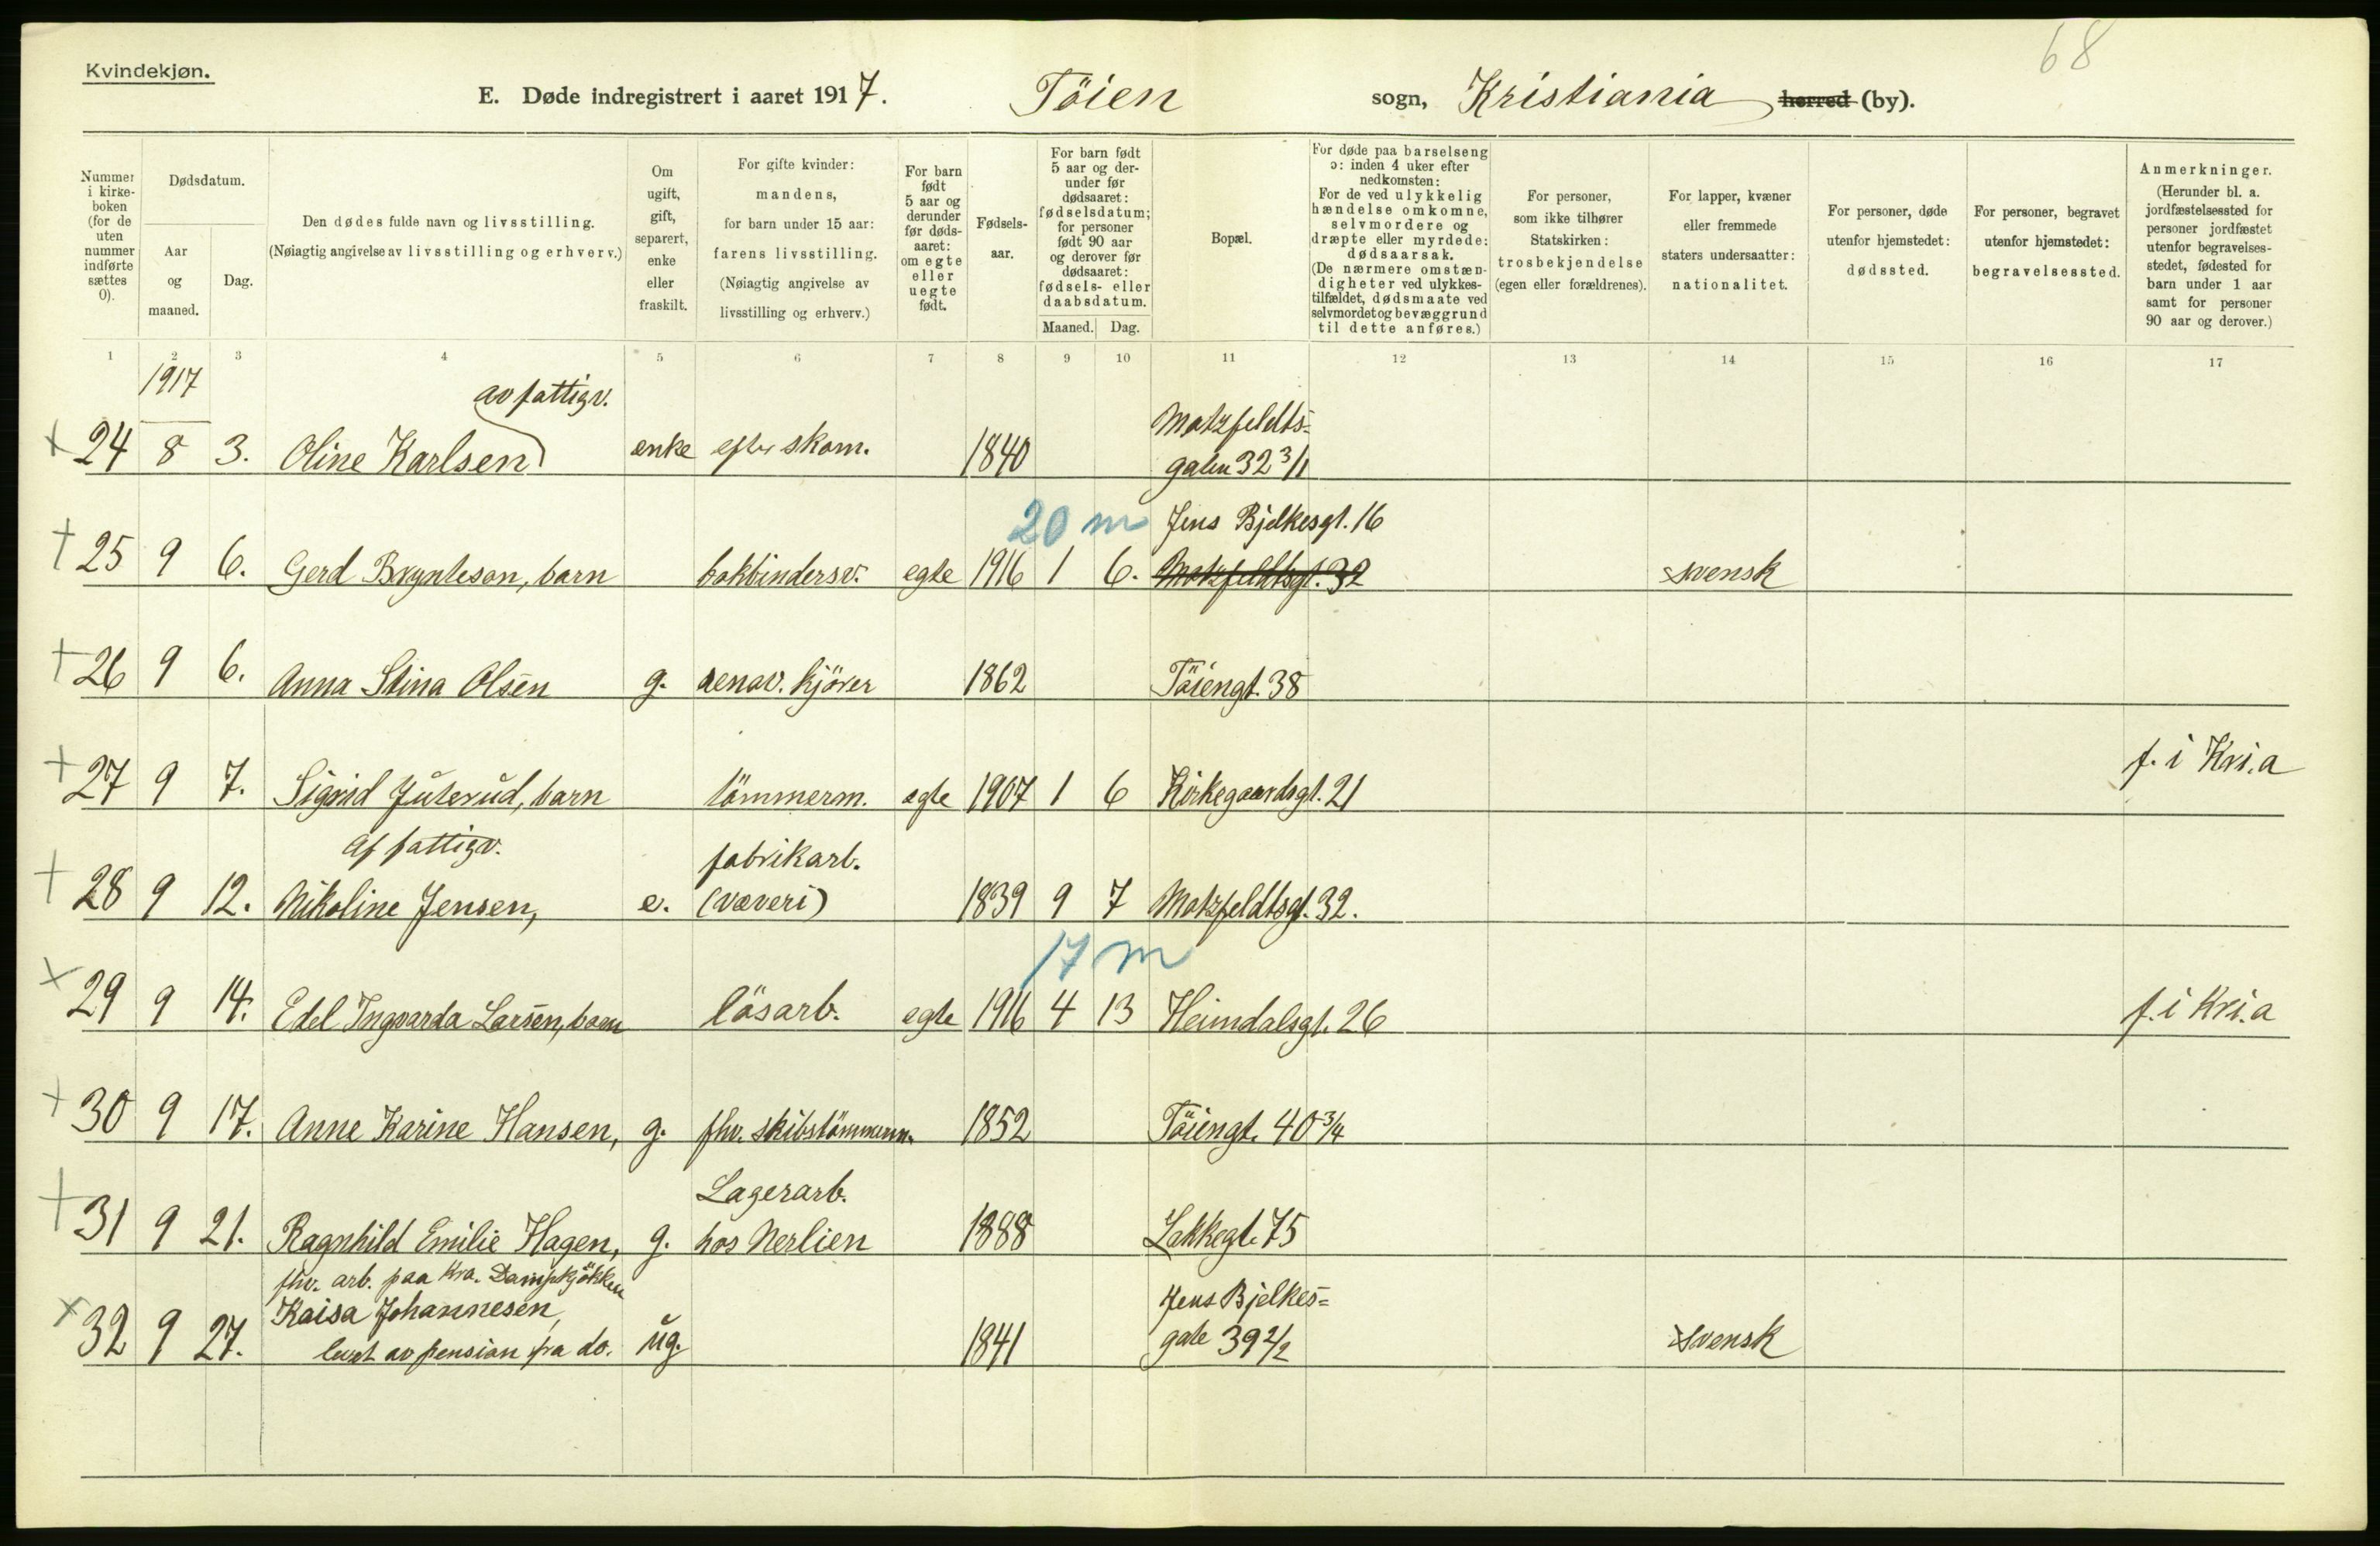 68
Kvindekjøn.
E. Døde indregistrert i aaret 1917. Töien sogn, Kristiania herred (by).
Nummer i kirkeboken (for de uten nummer indførte sættes 0).
Dødsdatum.
Aar og maaned.
Dag.
Den dødes fulde navn og livsstilling.
(Nøiagtig angivelse av livsstilling og erhverv.)
Om ugift, gift, separert, enke eller fraskilt.
For gifte kvinder: mandens, for barn under 15 aar: farens livsstilling. (Nøiagtig angivelse av livsstilling og erhverv.)
For barn født 5 aar og derunder før dødsaaret: om egte eller uegte født.
Fødselsaar.
For barn født 5 aar og derunder før dødsaaret: fødselsdatum; for personer født 90 aar og derover før dødsaaret: fødsels- eller daabsdatum.
Maaned. Dag.
Bopæl.
For døde paa barselseng ɔ: inden 4 uker efter nedkomsten: For de ved ulykkelig hændelse omkomne, selvmordere og dræpte eller myrdede: dødsaarsak. (De nærmere omstændigheter ved ulykkestilfældet, dødsmaate ved selvmordet og bevæggrund til dette anføres.)
For personer, som ikke tilhører Statskirken: trosbekjendelse (egen eller forældrenes).
For lapper, kvæner eller fremmede staters undersaatter: nationalitet.
For personer, døde utenfor hjemstedet: dødssted.
For personer, begravet utenfor hjemstedet: begravelsessted.
Anmerkninger. (Herunder bl. a. jordfæstelsessted for personer jordfæstet utenfor begravelsesstedet, fødested for barn under 1 aar samt for personer 90 aar og derover.)
1 2 3 4 5 6 7 8 9 10 11 12 13 14 15 16 17
1917
av fattigv.
Matzfeldts-
24 8 3. Oline Karlsen enke efter skom. 1840 gaten 32 3/1
20 m Jens Bjelkesgt. 16
25 9 6. Gerd Brynteson, barn bokbindersv. egte 1916 1 6. Motzfeldtsgt. 32 svensk
26 9 6. Anna Stina Olsen g. renov. kjörer 1862 Töiengt. 38
f. i Kri.a
27 9 7. Sigrid Juterud, barn tömmerm. egte 1907 1 6 Kirkegaardsgt. 21
af fattigv. fabrikarb.
28 9 12. Nikoline Jensen, e. (væveri) 1839 9 7 Motzfeldtsgt. 32.
17 m
29 9 14. Edel Ingvarda Larsen, barn lösarb. egte 1916 4 13 Heimdalsgt. 26 f. i Kri.a
30 9 17. Anne Karine Hansen, g. fhv. skibstömmerm. 1852 Töiengt. 40 3/4
Lagerarb.
31 9 21. Ragnhild Emilie Hagen, g. hos Nerlien 1888 Lakkegt. 75
fhv. arb. paa Kra. Dampkjökken
Kaisa Johannesen, Jens Bjelkes-
32 9 27. levet av pension fra do. ug. 1841 gate 39 2/2 svensk